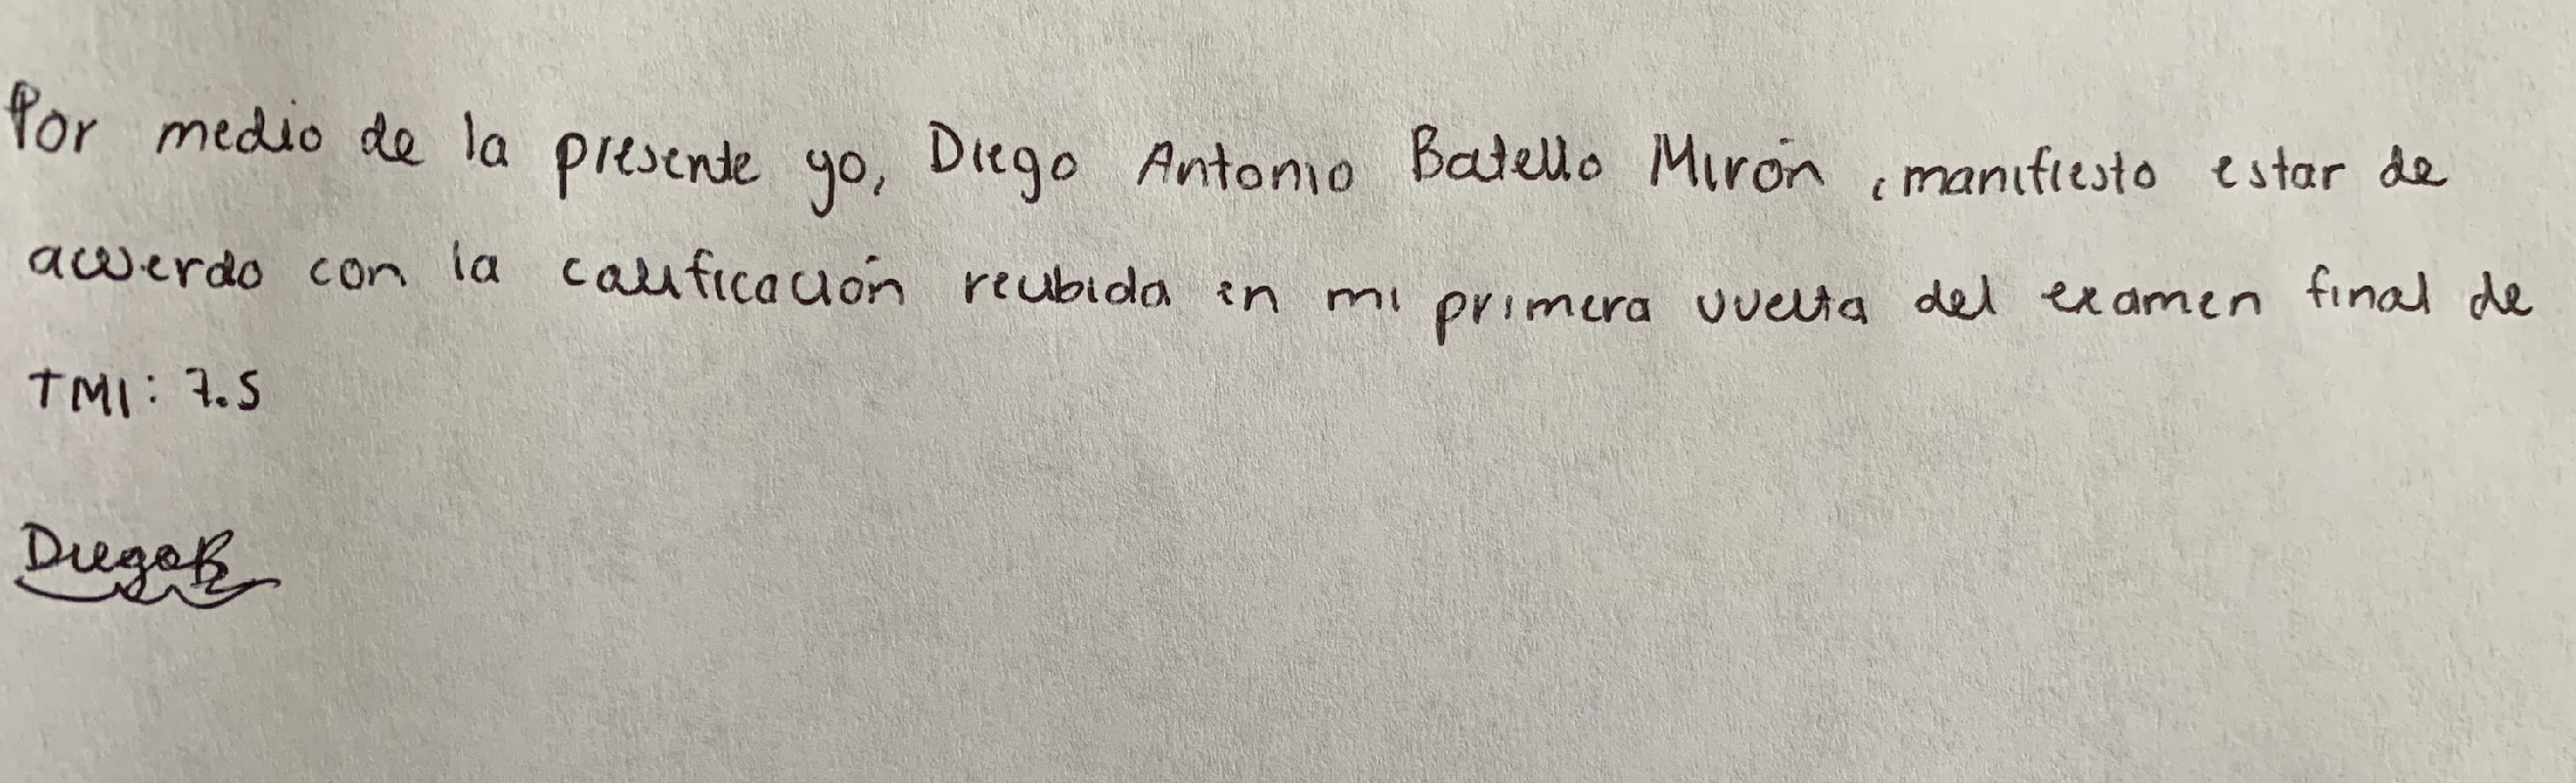 Por medio de la presente yo, Diego Antonio Batello Mirón, manifiesto estar de
acuerdo con la calificación recibida en mi primera vuelta del examen final de
TMI: 7.5
DiegoB